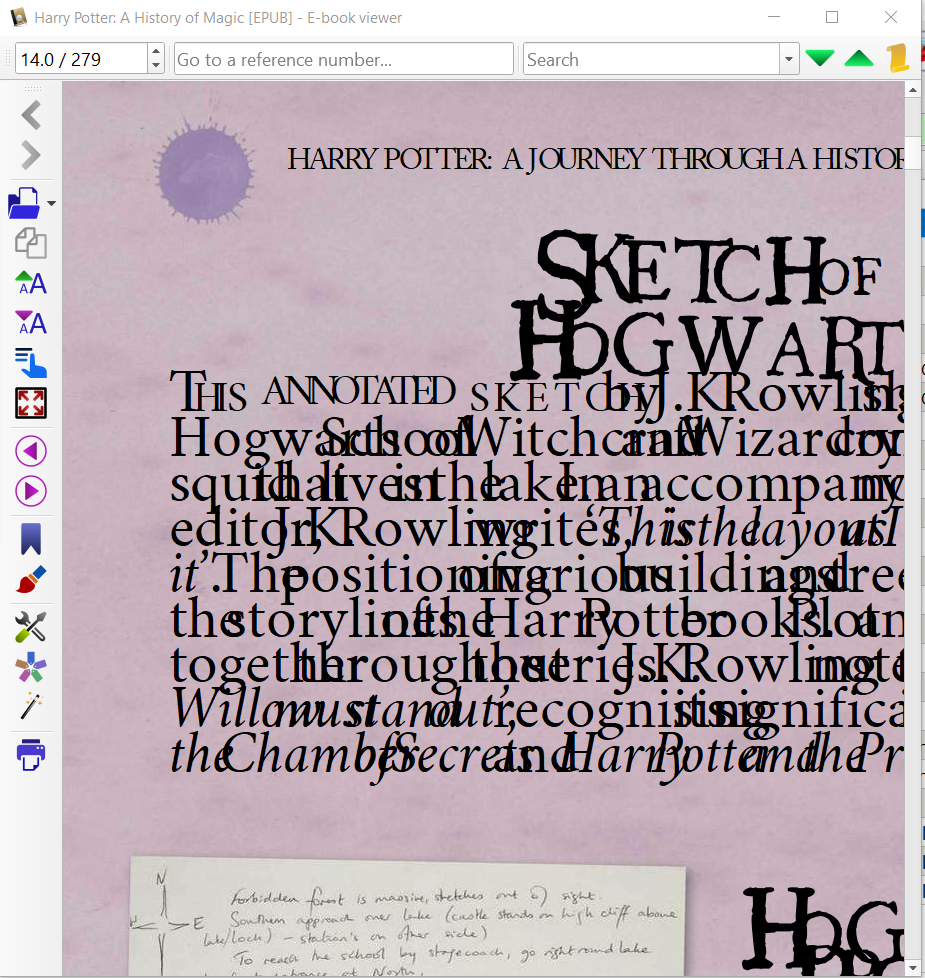 Harry Potter: A History of Magic [EPUB] - E-book viewer
14.0 / 279
Go to a reference number...
Search
HARRY POTTER: A JOURNEY THROUGH A HISTOR
SKETCH OF
HOGWART
THIS ANNOTATED SKETCH by J.K. Rowling
Hogwarts School of Witchcraft and Wizardry
squid that lives in the lake. In an accompany
editor, J.K. Rowling writes, ‘This is the layout as I
it’. The positioning of various buildings and tree
the storylines of the Harry Potter books. Plot an
together throughout the series. J.K. Rowling note
Willow must stand out’, recognising its significa
the Chamber of Secrets and Harry Potter and the Pr
N
E
Forbidden forest is massive, stretches out of sight.
Southern approach over lake (castle stands on high cliff above
lake/loch) – station's on other side)
To reach the school by stagecoach, go right round lake
to front entrance at North.
HOG